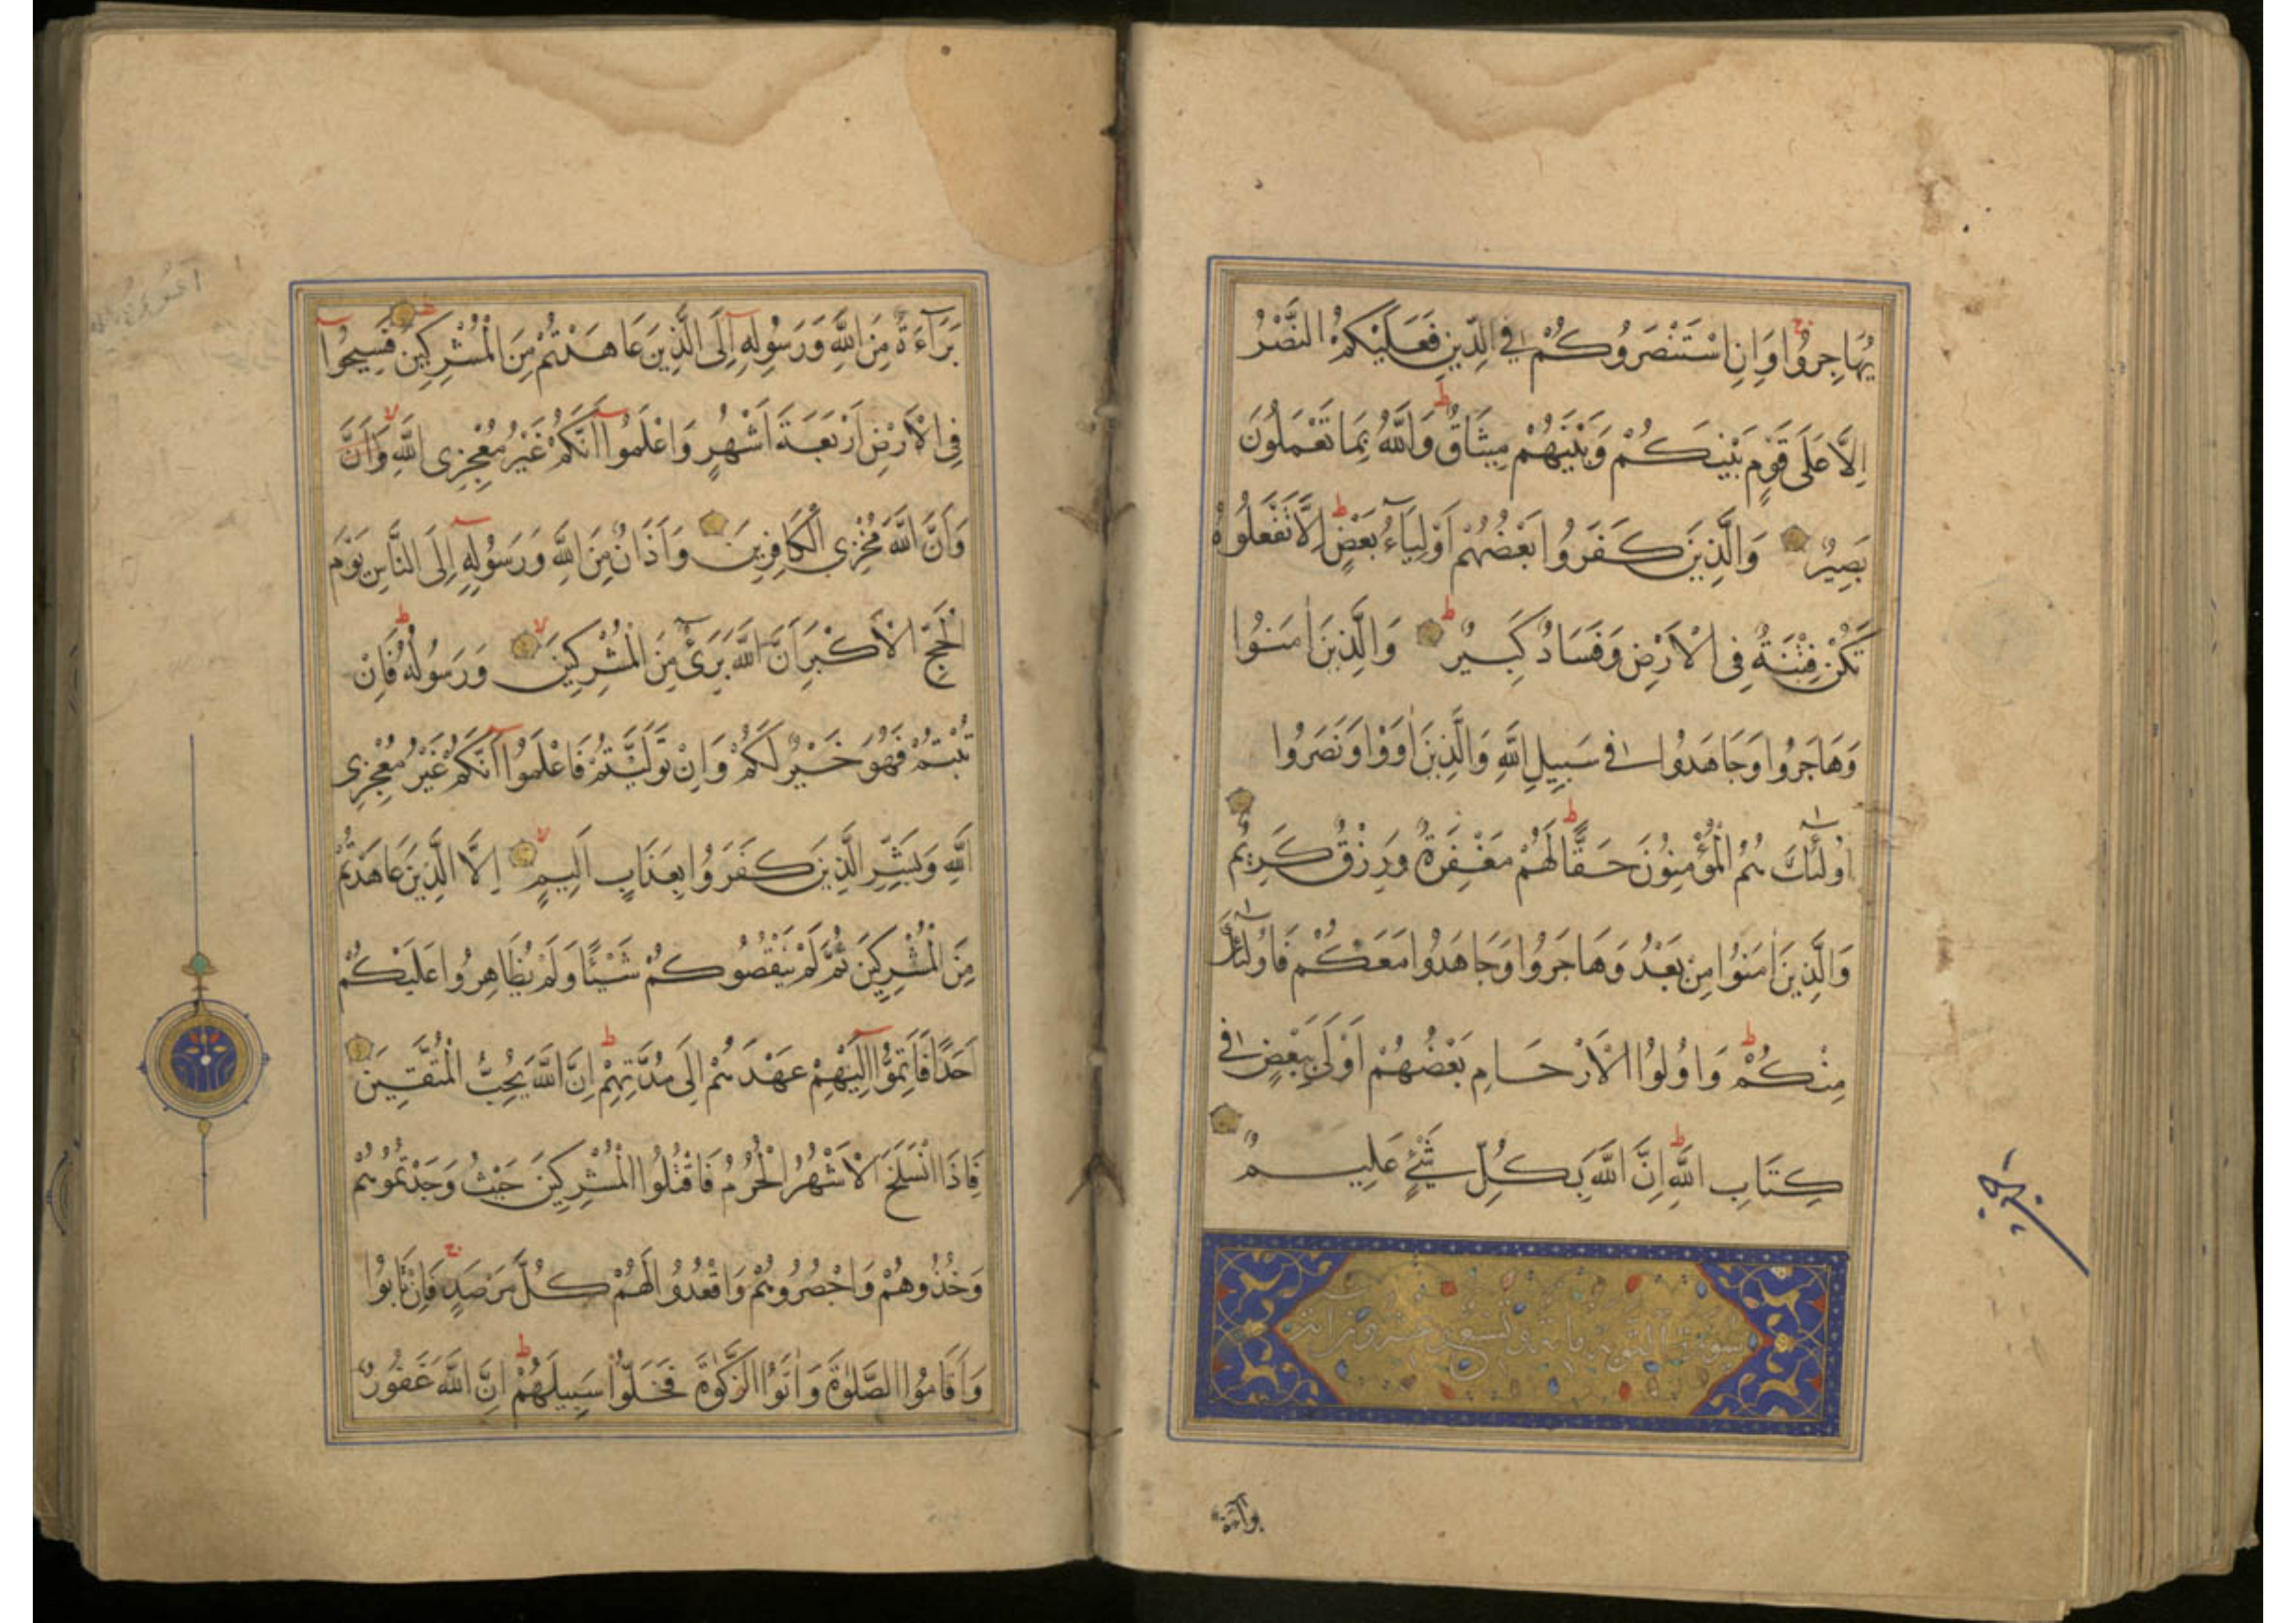 يُهَاجِرُوا وَاِنِ اسْتَنْصَرُوكُمْ فِي الدِّينِ فَعَلَيْكُمُ النَّصْرُ
اِلَّا عَلَى قَوْمٍ بَيْنَكُمْ وَبَيْنَهُمْ مِيثَاقٌ وَاللَّهُ بِمَا تَعْمَلُونَ
بَصِيرٌ وَالَّذِينَ كَفَرُوا بَعْضُهُمْ اَوْلِيَآءُ بَعْضٍ اِلَّا تَفْعَلُوهُ
تَكُنْ فِتْنَةٌ فِى الْاَرْضِ وَفَسَادٌ كَبِيرٌ وَالَّذِينَ اٰمَنُوا
وَهَاجَرُوا وَجَاهَدُوا فِي سَبِيلِ اللَّهِ وَالَّذِينَ اٰوَوْا وَنَصَرُوا
اُولٰٓئِكَ هُمُ الْمُؤْمِنُونَ حَقًّا لَهُمْ مَغْفِرَةٌ وَرِزْقٌ كَرِيمٌ
وَالَّذِينَ اٰمَنُوا مِنْ بَعْدُ وَهَاجَرُوا وَجَاهَدُوا مَعَكُمْ فَاُولٰٓئِكَ
مِنْكُمْ وَاُولُوا الْاَرْحَامِ بَعْضُهُمْ اَوْلَى بِبَعْضٍ فِي
كِتَابِ اللَّهِ اِنَّ اللَّهَ بِكُلِّ شَيْءٍ عَلِيمٌ
سورة التوبة مائة وتسع وعشرون اية
برآءة
بَرَآءَةٌ مِنَ اللَّهِ وَرَسُولِهِ اِلَى الَّذِينَ عَاهَدْتُمْ مِنَ الْمُشْرِكِينَ فَسِيحُوا
فِى الْاَرْضِ اَرْبَعَةَ اَشْهُرٍ وَاعْلَمُوا اَنَّكُمْ غَيْرُ مُعْجِزِى اللَّهِ وَاَنَّ
وَاَنَّ اللَّهَ مُخْزِي الْكَافِرِينَ وَاَذَانٌ مِنَ اللَّهِ وَرَسُولِهِ اِلَى النَّاسِ يَوْمَ
الْحَجِّ الْاَكْبَرِ اَنَّ اللَّهَ بَرِىٓءٌ مِنَ الْمُشْرِكِينَ وَرَسُولُهُ فَاِنْ
تُبْتُمْ فَهُوَ خَيْرٌ لَكُمْ وَاِنْ تَوَلَّيْتُمْ فَاعْلَمُوا اَنَّكُمْ غَيْرُ مُعْجِزِى
اللَّهِ وَبَشِّرِ الَّذِينَ كَفَرُوا بِعَذَابٍ اَلِيمٍ اِلَّا الَّذِينَ عَاهَدْتُمْ
مِنَ الْمُشْرِكِينَ ثُمَّ لَمْ يَنْقُصُوكُمْ شَيْئًا وَلَمْ يُظَاهِرُوا عَلَيْكُمْ
اَحَدًا فَاَتِمُّوا اِلَيْهِمْ عَهْدَهُمْ اِلَى مُدَّتِهِمْ اِنَّ اللَّهَ يُحِبُّ الْمُتَّقِينَ
فَاِذَا انْسَلَخَ الْاَشْهُرُ الْحُرُمُ فَاقْتُلُوا الْمُشْرِكِينَ حَيْثُ وَجَدْتُمُوهُمْ
وَخُذُوهُمْ وَاحْصُرُوهُمْ وَاقْعُدُوا لَهُمْ كُلَّ مَرْصَدٍ فَاِنْ تَابُوا
وَاَقَامُوا الصَّلٰوةَ وَاٰتَوُا الزَّكٰوةَ فَخَلُّوا سَبِيلَهُمْ اِنَّ اللَّهَ غَفُورٌ